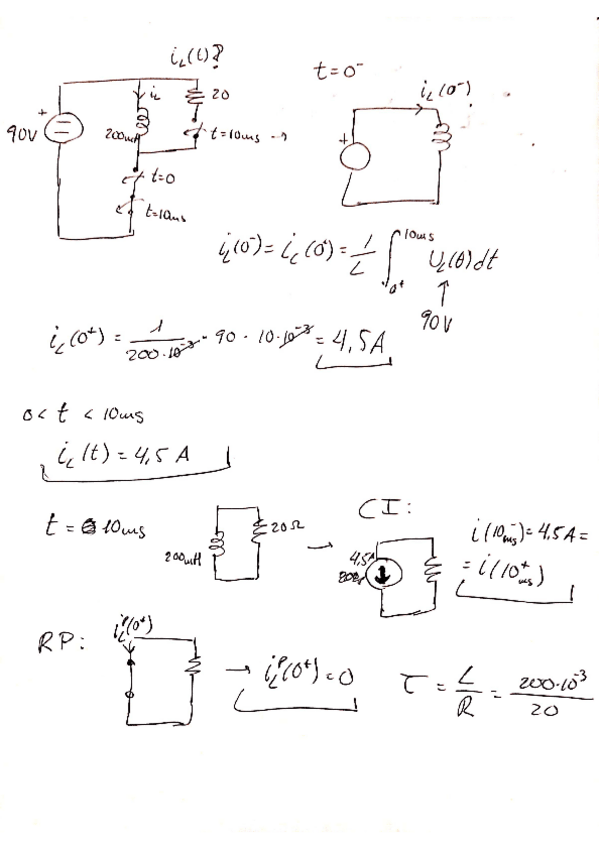 i_L(t)?
t=0⁻
i_L(0⁻)
+
i_L
20
90V
200mH
t=10ms
+
t=0
t=10ms
i_L(0⁻) = i_L(0⁺) = 1/L ∫_{0⁺}^{10ms} U_L(t) dt
↑
90V
i_L(0⁺) = 1/(200·10⁻³) · 90 · 10·10⁻³ = 4,5A
0 < t < 10ms
i_L(t) = 4,5 A
t = 10ms
200mH
20Ω
→
CI:
4,5A
i(10⁻ms) = 4,5A =
= i(10⁺ms)
RP:
i_L^P(0⁺)
→ i_L^P(0⁺) = 0
τ = L/R = 200·10⁻³/20